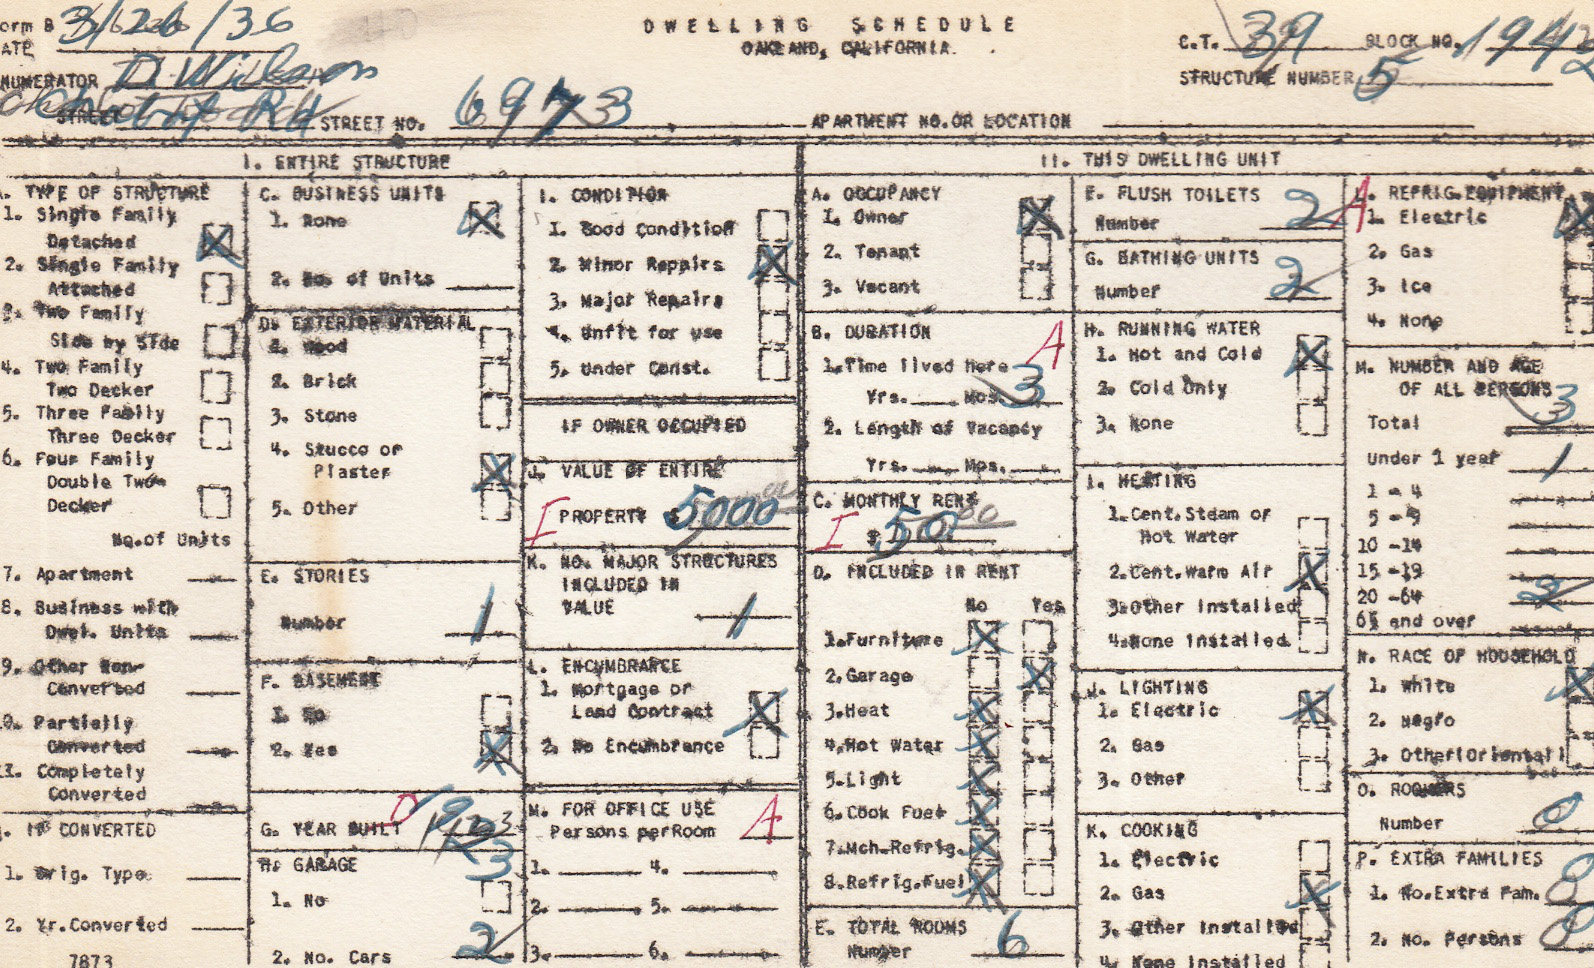 orm B
DWELLING SCHEDULE
OAKLAND, CALIFORNIA.
ATE 3/26/36
C.T. 39 BLOCK NO. 1942
NUMERATOR D Wilson
STRUCTURE NUMBER 5
STREET Rd STREET NO. 6973 APARTMENT NO.OR LOCATION
I. ENTIRE STRUCTURE
. TYPE OF STRUCTURE
1. Single Family
Detached X
2. Single Family
Attached
3. Two Family
Side by Side
4. Two Family
Two Decker
5. Three Family
Three Decker
6. Four Family
Double Two-
Decker
No.of Units
7. Apartment
8. Business with
Dwel. Units
9. Other Non-
Converted
0. Partially
Converted
11. Completely
Converted
. IF CONVERTED
1. Orig. Type
2. Yr.Converted
7873
C. BUSINESS UNITS
1. None X
2. No. of Units
D. EXTERIOR MATERIAL
1. Wood
2. Brick
3. Stone
4. Stucco or
Plaster X
5. Other
E. STORIES
Number 1
F. BASEMENT
1. No
2. Yes X
G. YEAR BUILT
H. GARAGE
1. No
2. No. Cars 2
I. CONDITION
1. Good Condition
2. Minor Repairs X
3. Major Repairs
4. Unfit for use
5. Under Const.
IF OWNER OCCUPIED
J. VALUE OF ENTIRE
I PROPERTY $ 5000
K. NO. MAJOR STRUCTURES
INCLUDED IN
VALUE 1
L. ENCUMBRANCE
1. Mortgage or
Land Contract X
2. No Encumbrance
M. FOR OFFICE USE
Persons perRoom A
1. 4.
2. 5.
3. 6.
II. THIS DWELLING UNIT
A. OCCUPANCY
1. Owner X
2. Tenant
3. Vacant
B. DURATION A
1.Time lived Here
Yrs. Mos. 3
2. Length of Vacancy
Yrs. Mos.
C. MONTHLY RENT
I $ 50
D. INCLUDED IN RENT
No Yes
1.Furniture X
2.Garage X
3.Heat X
4.Hot Water X
5.Light X
6.Cook Fuel X
7.Mch.Refrig. X
8.Refrig.Fuel X
E. TOTAL ROOMS
Number 6
F. FLUSH TOILETS
Number 2
G. BATHING UNITS
Number 2
H. RUNNING WATER
1. Hot and Cold X
2. Cold Only
3. None
I. HEATING
1.Cent.Steam or
Hot Water
2.Cent.Warm Air X
3.Other Installed
4.None Installed
J. LIGHTING
1. Electric X
2. Gas
3. Other
K. COOKING
1. Electric
2. Gas X
3. Other Installed
4. None Installed
A L. REFRIG.EQUIPMENT
1. Electric X
2. Gas
3. Ice
4. None
M. NUMBER AND AGE
OF ALL PERSONS
Total 3
Under 1 year 1
1 - 4
5 - 9
10 -14
15 -19
20 -64 2
65 and over
N. RACE OF HOUSEHOLD
1. White X
2. Negro
3. Other(Oriental)
O. ROOMERS
Number 0
P. EXTRA FAMILIES
1. No.Extra Fam. 0
2. No. Persons 0